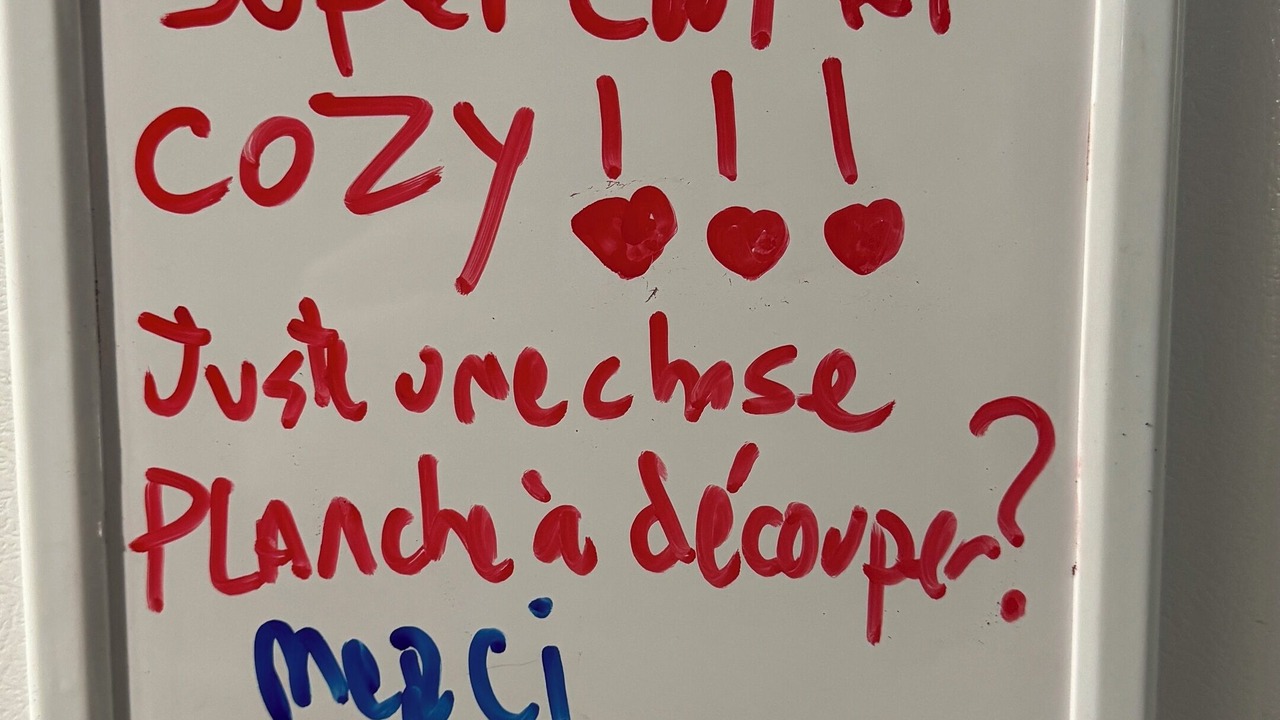 Super
COZY !!!
Juste une chose
Planche à découper ?
merci